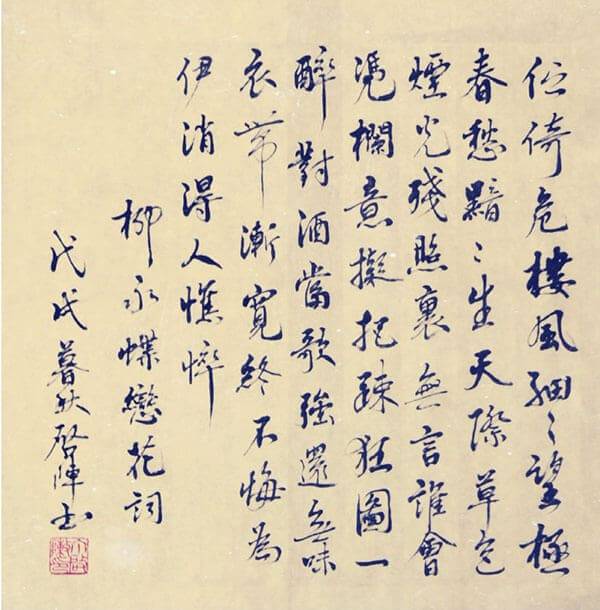 伫倚危樓風細〻望極
春愁黯〻生天際草色
煙光殘照裏無言誰會
凴欄意擬把疎狂圖一
醉對酒當歌強還無味
衣帶漸寬終不悔為
伊消得人憔悴
柳永蝶戀花詞
戊戌暮秋啓陣書